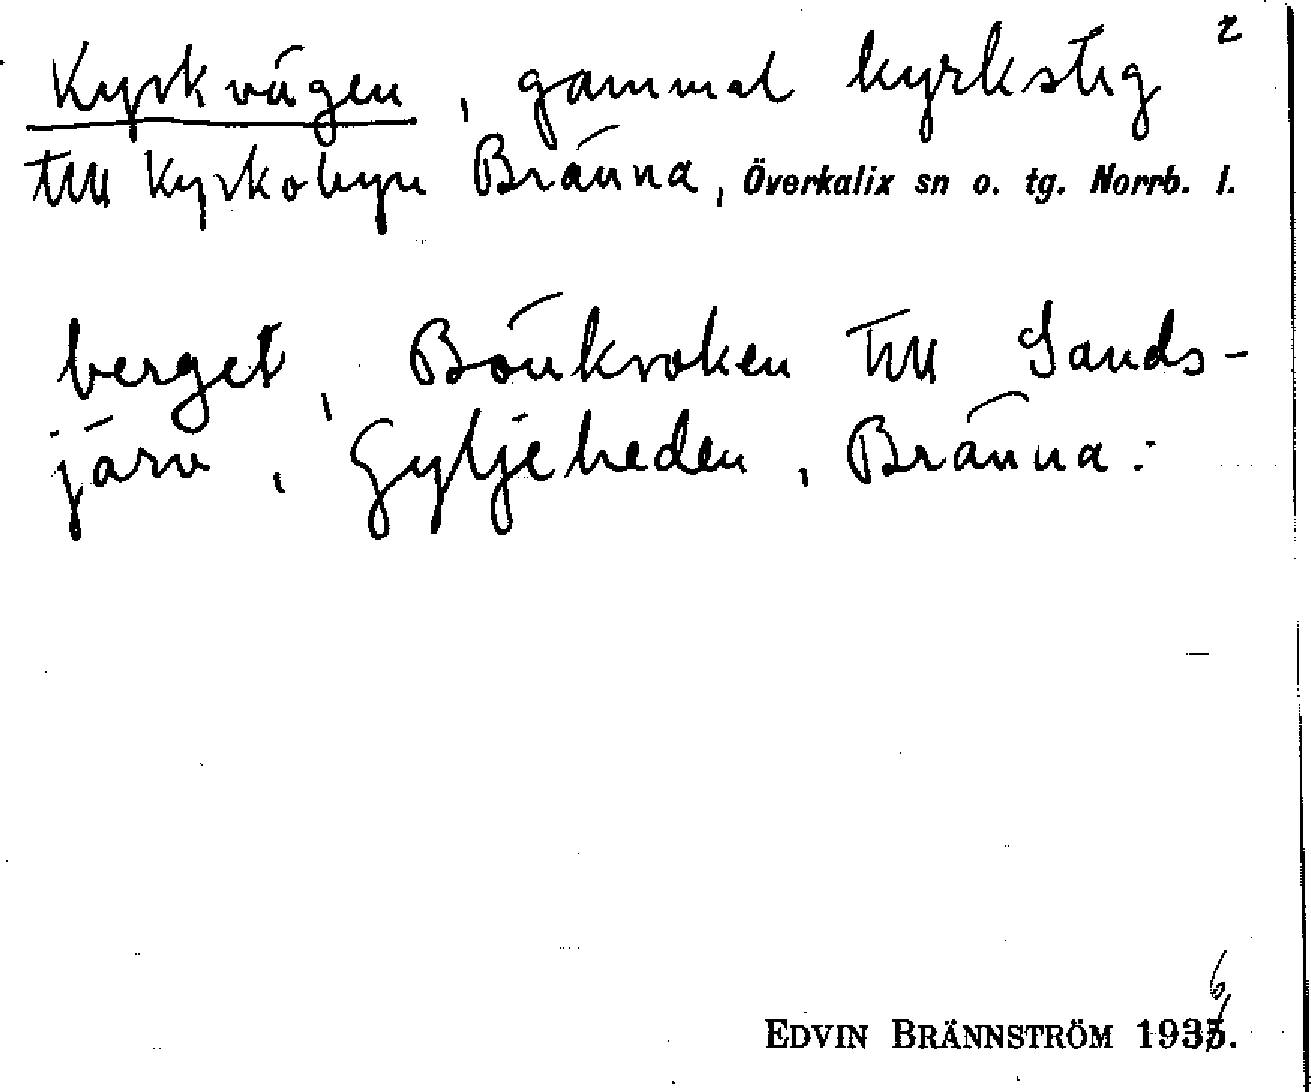 2
Kyrkvägen, gammal kyrkstig
till Kyrkobyn Bränna, Överkalix sn o. tg. Norrb. l.
berget, Bönkroken till Sands-
järv, Gyljeheden, Bränna:
6
EDVIN BRÄNNSTRÖM 1935.